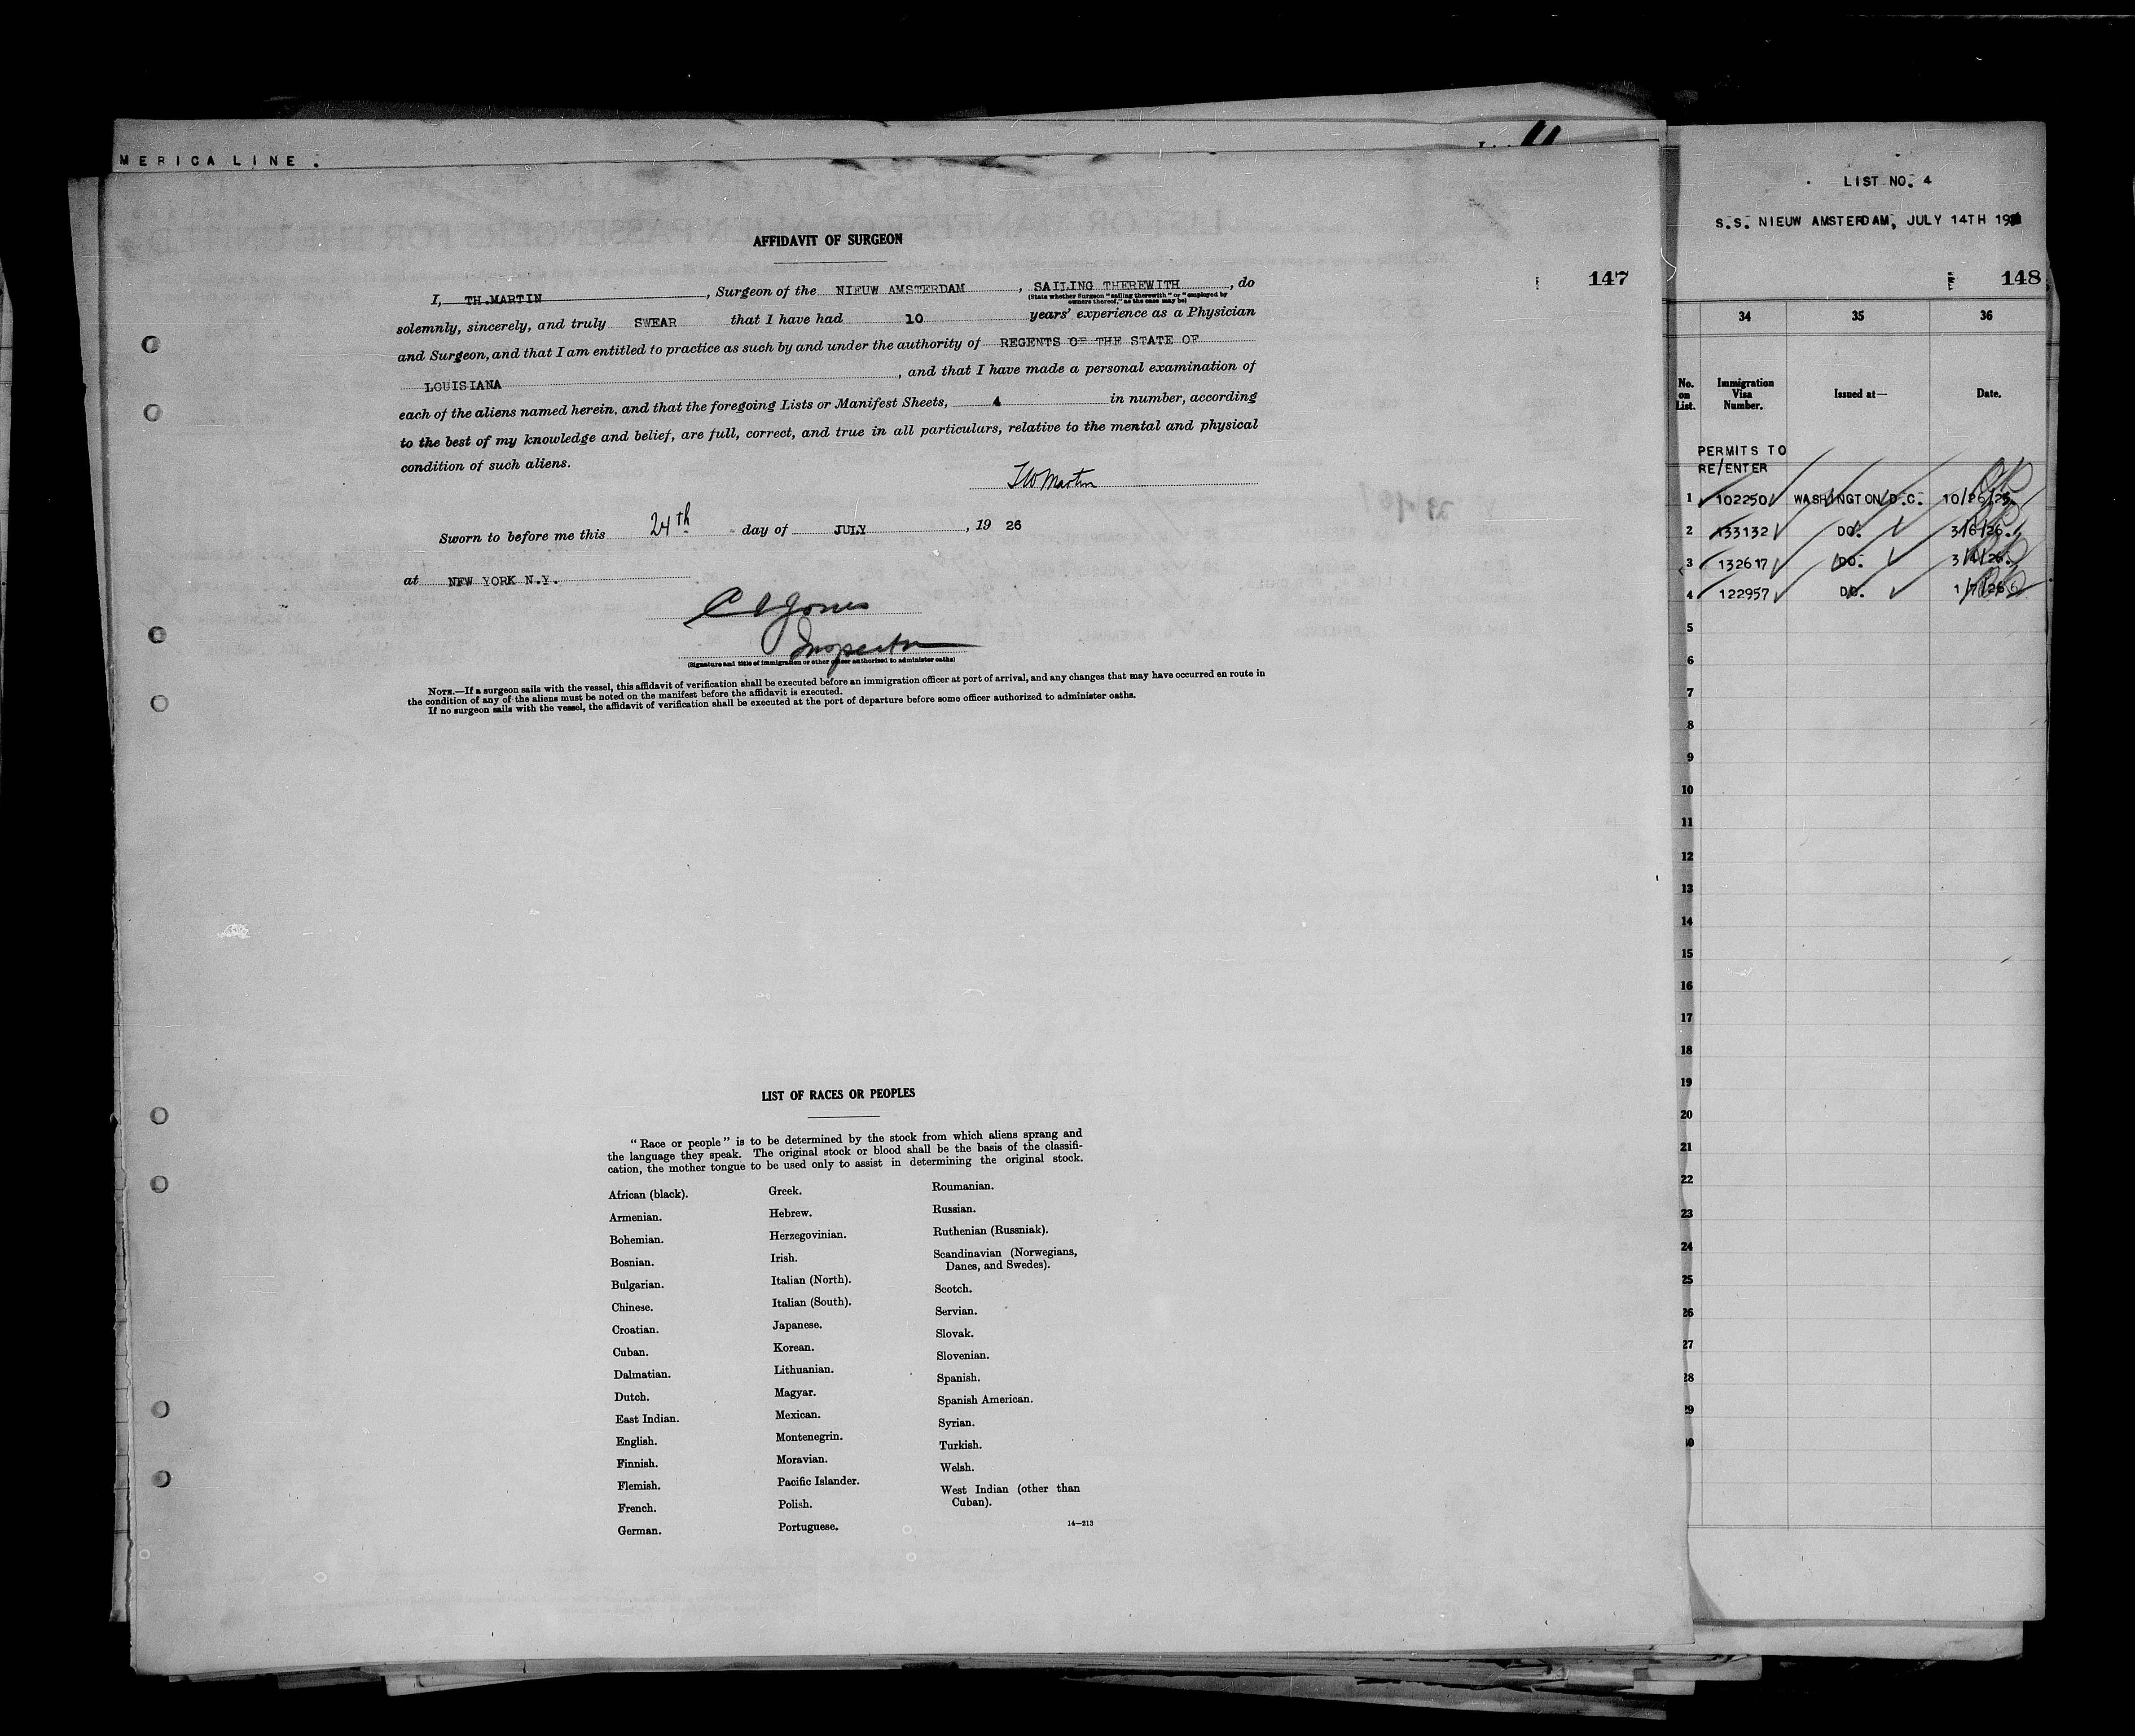 MERICA LINE .
AFFIDAVIT OF SURGEON
I, TH.MARTIN, Surgeon of the NIEUW AMSTERDAM, SAILING THEREWITH, do
(State whether Surgeon "sailing therewith" or "employed by
owners thereof," as the case may be)
solemnly, sincerely, and truly SWEAR that I have had 10 years' experience as a Physician
and Surgeon, and that I am entitled to practice as such by and under the authority of REGENTS OF THE STATE OF
LOUISIANA, and that I have made a personal examination of
each of the aliens named herein, and that the foregoing Lists or Manifest Sheets, 4 in number, according
to the best of my knowledge and belief, are full, correct, and true in all particulars, relative to the mental and physical
condition of such aliens.
Martin
Sworn to before me this 24th day of JULY, 19 26
at NEW YORK N.Y.
Jones
Inspector
(Signature and title of immigration or other officer authorized to administer oaths)
NOTE.—If a surgeon sails with the vessel, this affidavit of verification shall be executed before an immigration officer at port of arrival, and any changes that may have occurred en route in
the condition of any of the aliens must be noted on the manifest before the affidavit is executed.
If no surgeon sails with the vessel, the affidavit of verification shall be executed at the port of departure before some officer authorized to administer oaths.
147
LIST OF RACES OR PEOPLES
"Race or people" is to be determined by the stock from which aliens sprang and
the language they speak. The original stock or blood shall be the basis of the classifi-
cation, the mother tongue to be used only to assist in determining the original stock.
African (black).
Armenian.
Bohemian.
Bosnian.
Bulgarian.
Chinese.
Croatian.
Cuban.
Dalmatian.
Dutch.
East Indian.
English.
Finnish.
Flemish.
French.
German.
Greek.
Hebrew.
Herzegovinian.
Irish.
Italian (North).
Italian (South).
Japanese.
Korean.
Lithuanian.
Magyar.
Mexican.
Montenegrin.
Moravian.
Pacific Islander.
Polish.
Portuguese.
Roumanian.
Russian.
Ruthenian (Russniak).
Scandinavian (Norwegians,
Danes, and Swedes).
Scotch.
Servian.
Slovak.
Slovenian.
Spanish.
Spanish American.
Syrian.
Turkish.
Welsh.
West Indian (other than
Cuban).
14—213
LIST NO. 4
S.S. NIEUW AMSTERDAM, JULY 14TH 19
148
34 35 36
No. on List. Immigration Visa Number. Issued at— Date.
PERMITS TO
RE/ENTER
1 102250 WASHINGTON D.C. 10/26/25.
2 133132 DO. 3/6/26.
3 132617 DO. 3/4/26.
4 122957 DO. 1/7/26
5
6
7
8
9
10
11
12
13
14
15
16
17
18
19
20
21
22
23
24
25
26
27
28
29
30